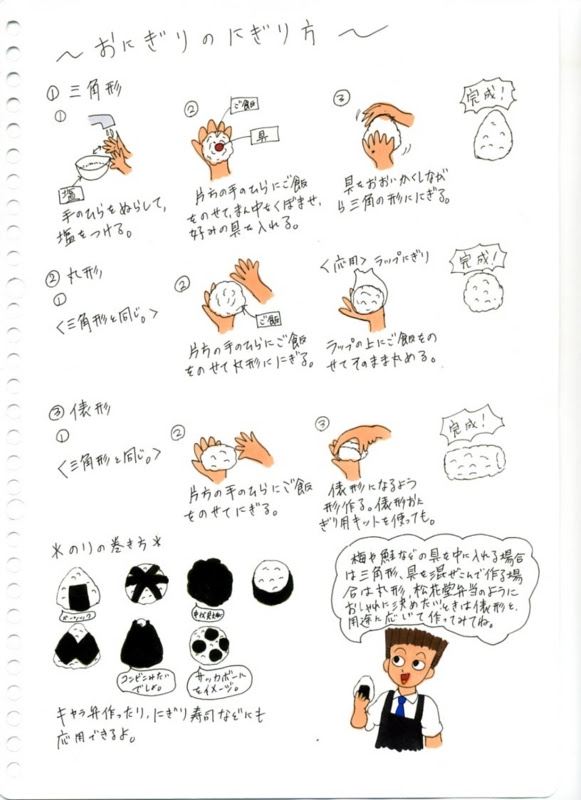 〜おにぎりのにぎり方〜
① 三角形
①
塩
手のひらをぬらして、
塩をつける。
②
ご飯
具
片方の手のひらにご飯
をのせて、まん中をくぼませ、
好みの具を入れる。
③
具をおおいかくしなが
ら三角の形ににぎる。
完成!
② 丸形
①
<三角形と同じ。>
②
ご飯
片方の手のひらにご飯
をのせて丸形ににぎる。
<応用> ラップにぎり
ラップの上にご飯をの
せてそのまま丸める。
完成!
③ 俵形
①
<三角形と同じ。>
②
片方の手のひらにご飯
をのせてにぎる。
③
俵形になるよう
形作る。俵形おに
ぎり用キットを使っても。
完成!
*のりの巻き方*
ベーシック
コンビニみたい
でしょ。
サッカーボール
をイメージ。
キャラ弁作ったり、にぎり寿司などにも
応用できるよ。
梅や鮭などの具を中に入れる場合
は三角形、具を混ぜこんで作る場
合は丸形、松花堂弁当のように
おしゃれに決めたいときは俵形と、
用途に応じて作ってみてね。